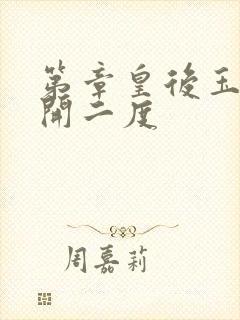 第章皇後玉
開二度
周嘉莉